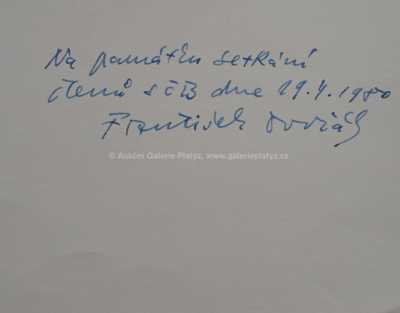 Na památku setkání
členů SČB dne 29.4.1980
František Dvořák
© Aukční Galerie Platýz, www.galerieplatyz.cz